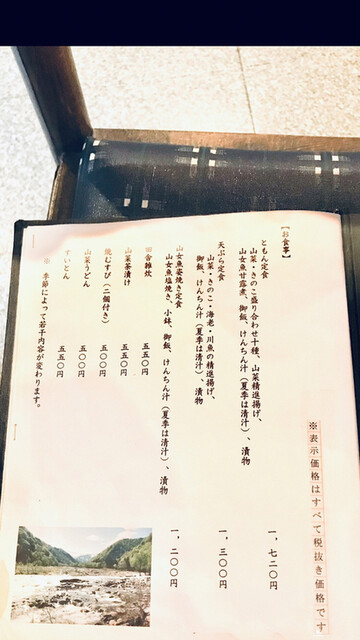 ※表示価格はすべて税抜き価格です
【お食事】
ともん定食 一、七二〇円
山菜・きのこ盛り合わせ十種、山菜精進揚げ、
山女魚甘露煮、御飯、けんちん汁(夏季は清汁)、漬物
天ぷら定食 一、三〇〇円
山菜・きのこ・海老・川魚の精進揚げ、
御飯、けんちん汁(夏季は清汁)、漬物
山女魚姿焼き定食 一、二〇〇円
山女魚塩焼き、小鉢、御飯、けんちん汁(夏季は清汁)、漬物
田舎雑炊 五五〇円
山菜茶漬け 五五〇円
焼むすび(二個付き) 五〇〇円
山菜うどん 五〇〇円
すいとん 五五〇円
※ 季節によって若干内容が変わります。